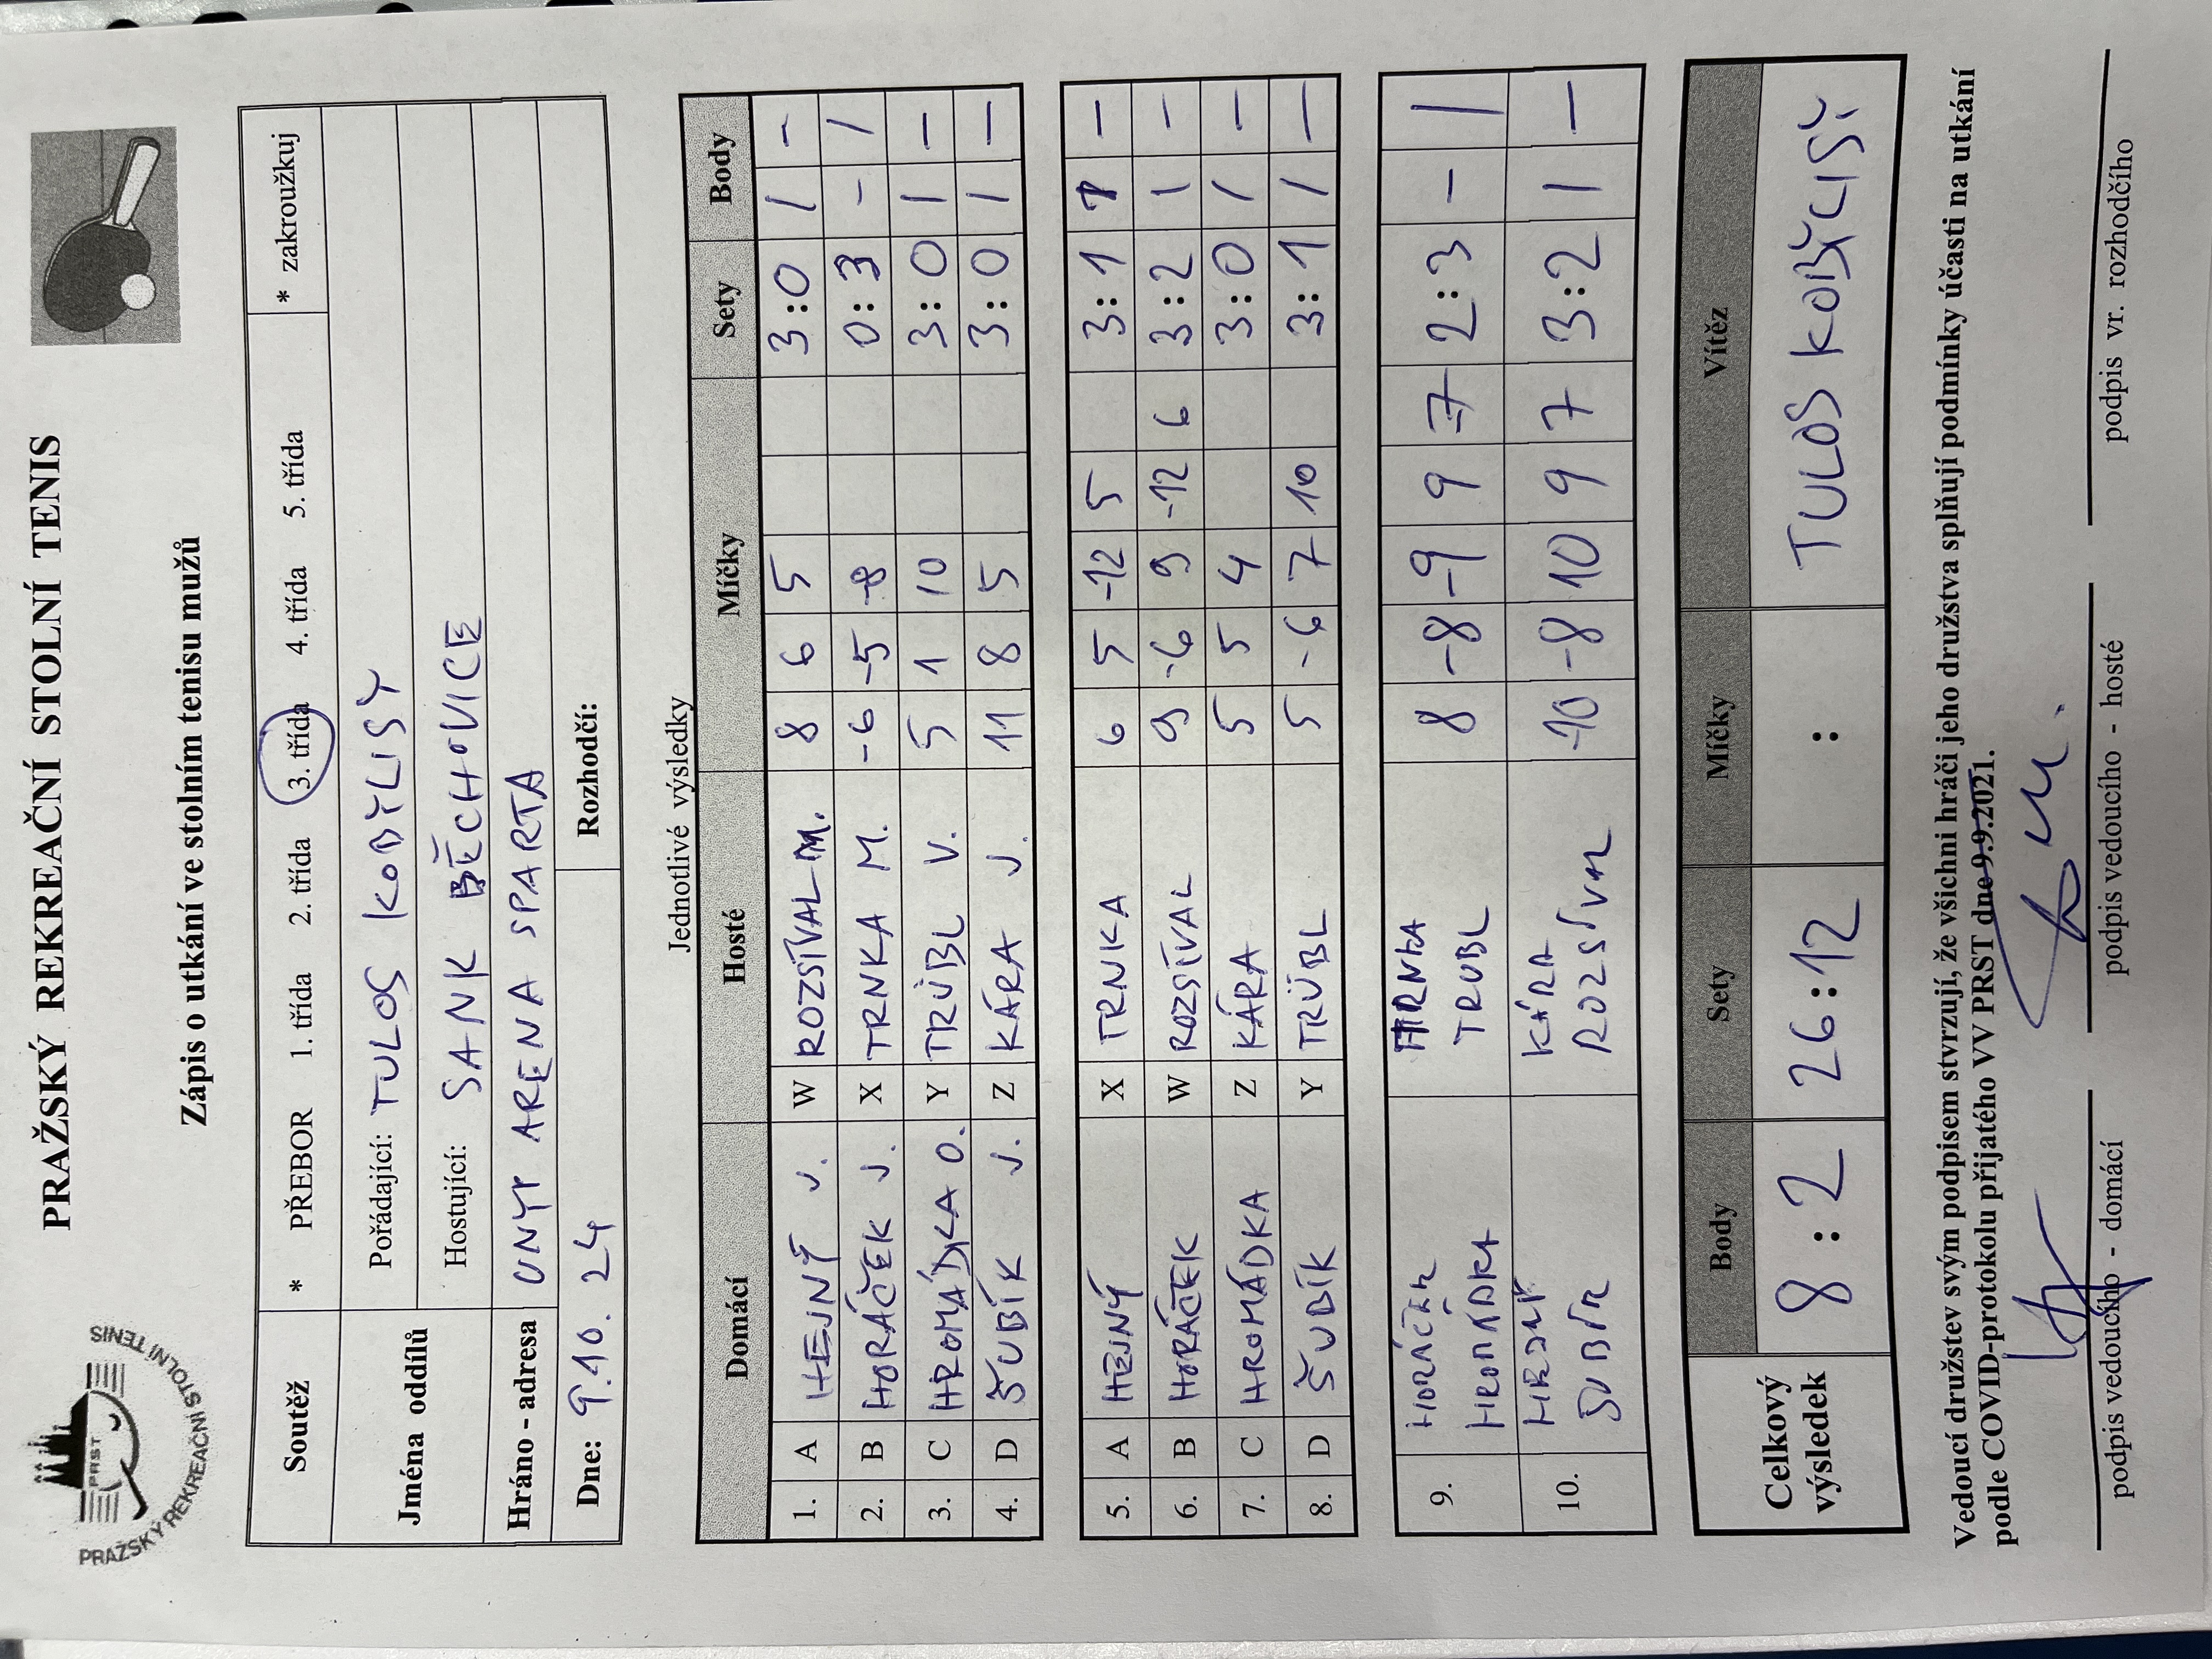 PRAŽSKÝ REKREAČNÍ STOLNÍ TENIS
PRST
PRAŽSKÝ REKREAČNÍ STOLNÍ TENIS
Zápis o utkání ve stolním tenisu mužů
Soutěž * PŘEBOR 1. třída 2. třída 3. třída 4. třída 5. třída * zakroužkuj
Jména oddílů Pořádající: TULOS KOBYLISY
Hostující: SANK BĚCHOVICE
Hráno - adresa UNYT ARENA SPARTA
Dne: 9.10.24 Rozhodčí:
Jednotlivé výsledky
Domácí Hosté Míčky Sety Body
1. A HEJNÝ J. W ROZSÍVAL M. 8 6 5 3:0 1 -
2. B HORÁČEK J. X TRNKA M. -6 -5 -8 0:3 - 1
3. C HROMÁDKA O. Y TRÜBL V. 5 1 10 3:0 1 -
4. D ŠUBÍK J. Z KÁRA J. 11 8 5 3:0 1 -
5. A HEJNÝ X TRNKA 6 5 -12 5 3:1 1 -
6. B HORÁČEK W ROZSÍVAL 9 -6 9 -12 6 3:2 1 -
7. C HROMÁDKA Z KÁRA 5 5 4 3:0 1 -
8. D ŠUBÍK Y TRÜBL 5 -6 7 10 3:1 1 -
9. HORÁČEK TRNKA 8 -8 -9 9 -7 2:3 - 1
HROMÁDKA TRUBL
10. HEJNÝ KÁRA -10 -8 10 9 7 3:2 1 -
ŠUBÍK ROZSÍVAL
Celkový výsledek Body Sety Míčky Vítěz
8:2 26:12 : TULOS KOBYLISY
Vedoucí družstev svým podpisem stvrzují, že všichni hráči jeho družstva splňují podmínky účasti na utkání
podle COVID-protokolu přijatého VV PRST dne 9.9.2021.
podpis vedoucího - domácí podpis vedoucího - hosté podpis vr. rozhodčího